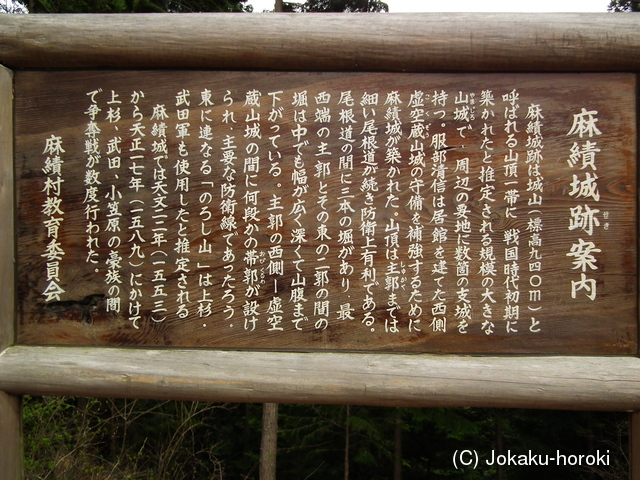 麻績城跡案内
麻績城跡は城山(標高九四〇m)と
呼ばれる山頂一帯に、戦国時代初期に
築かれたと推定される規模の大きな
山城で、周辺の要地に数箇の支城を
持つ。服部清信は居館を建てた西側
虚空蔵山城の守備を補強するために
麻績城が築かれた。山頂は主郭までは
細い尾根道が続き防衛上有利である。
尾根道の間に三本の堀があり、最
西端の主郭とその東の二郭の間の
堀は中でも幅が広く深くて山腹まで
下がっている。主郭の西側―虚空
蔵山城の間に何段かの帯郭が設け
られ、主要な防衛線であったろう。
東に連なる「のろし山」は上杉・
武田軍も使用したと推定される
麻績城では天文二二年(一五五三)
から天正一七年(一五八九)にかけて
上杉、武田、小笠原の豪族の間
で争奪戦が数度行われた。
麻績村教育委員会
(C) Jokaku-horoki